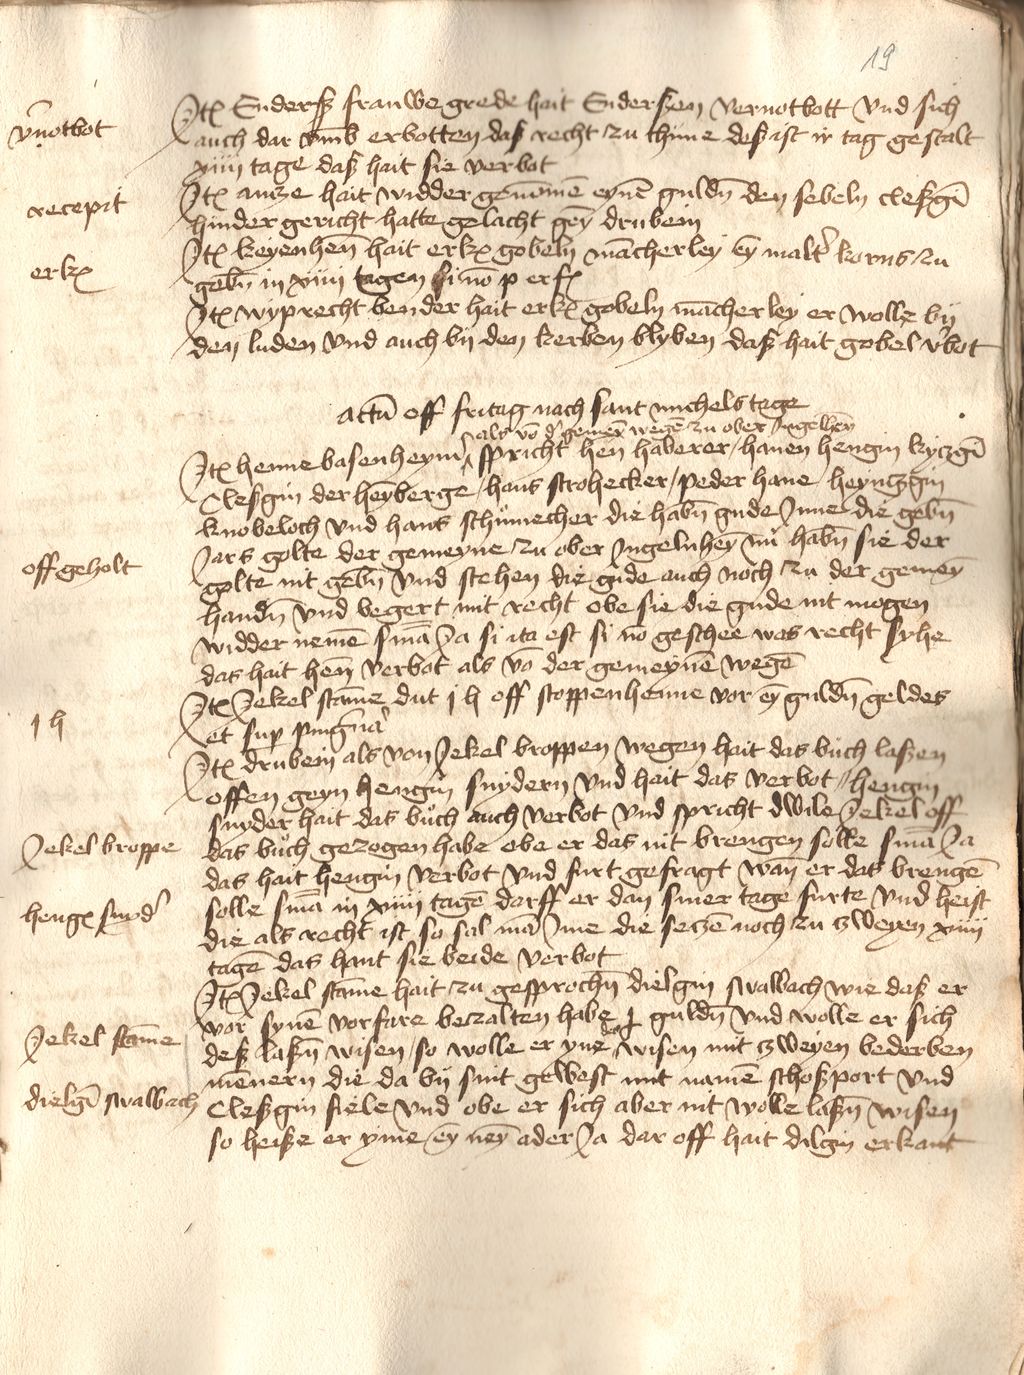 19
v̾notbot
Itꝫ Enderß frauwe grede hait Enderßen vernotbott vnd sich
auch dar vmb erbotten daß recht zu thune deß ist ir tag gestalt
xiiii tage daß hait sie verbot
recepit
Itꝫ antze hait widder genomē eynē guldn̄ den sebeln cleßgī
hinder gericht hatte gelacht geȳ drubein
erkꝫ
Itꝫ keyenhen̄ hait erkꝫ gobeln mācherley eȳ malt̾ korns zu
gebn̄ in xiiii tagen si nō p erfꝫ
Itꝫ wyprecht bender hait erkꝫ gobeln mācherley er wolle bij
den luden vnd auch bij den kerben blyben daß hait gobel v̾bot
actū off fritag nach sant michels tage
als vō d̾ gemeȳ wegē zu ober Ingelheȳ
Itꝫ henne basenheym spricht hen haberer / hanen hengin kyczgī
Cleßgin der heyberge / hans strohecker / peder hane / heyntzgin
knobeloch vnd hans schůmecher die habn̄ gude Inne die gebn̄
Jars golte der gemeyne zu ober Ingelnheȳ nů habn̄ sie der
off geholt
golte nit gebn̄ vnd stehen die gude auch noch zu der gemeȳ
handn̄ vnd begert mit recht obe sie die gude nit mogen
widder nemē smā Ja si ita est si nō geschee was recht sy he
das hait hen̄ verbot als vō der gemeynē wegē
1 h
Itꝫ Jekel stāme dut 1 h off stoppenhenne vor eȳ guldn̄ geldes
et sup pingn̄a
Itꝫ drubein als von Jekel broppen wegen hait das buch laßen
offen geyn hengin snydern vnd hait das verbot / hengin
snyder hait das bůch auch verbot vnd spricht dwile Jekel off
Jekel broppe
das bůch gezogen habe obe er das nit brengen solle smā Ja
das hait hengin verbot vnd furt gefragt wan̄ er das brengē
hengꝫ snyd̾
solle smā in xiiii tagē darff er dan siner tage furte vnd heist
die als recht ist so sal mā Ime die seczē noch zu zweyen xiiii
tagē das hant sie beide verbot
Itꝫ Jekel stāme hait zu gesprochn̄ dielgin swalbach wie daß er
vor synē vorfare beczalten habe 1 guldn̄ vnd wolle er sich
Jekel stāme
deß laßn̄ wisen / so wolle er yne daß wisen mit zweyen bederben
mēnern die da bij sint gewest mit namē schoßport vnd
dielgī swalbach
Cleßgin fiele vnd obe er sich aber nit wolle laßn̄ wisen
so heiße er yme eȳ neȳ ader Ja dar off hait dilgin erkant